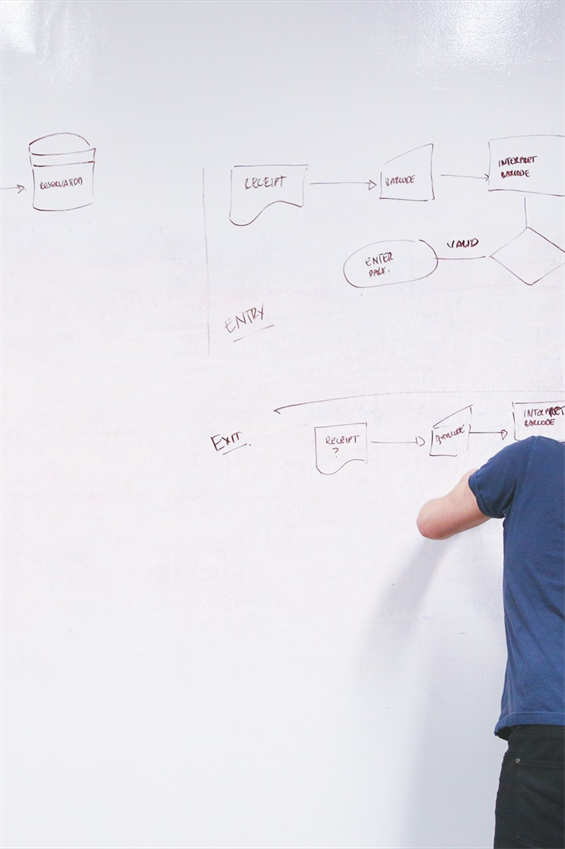 RESERVATION
RECEIPT
BARCODE
INTERPRET
BARCODE
VALID
ENTER
PARK.
ENTRY
EXIT.
RECEIPT
?
BARCODE
INTERPRET
BARCODE